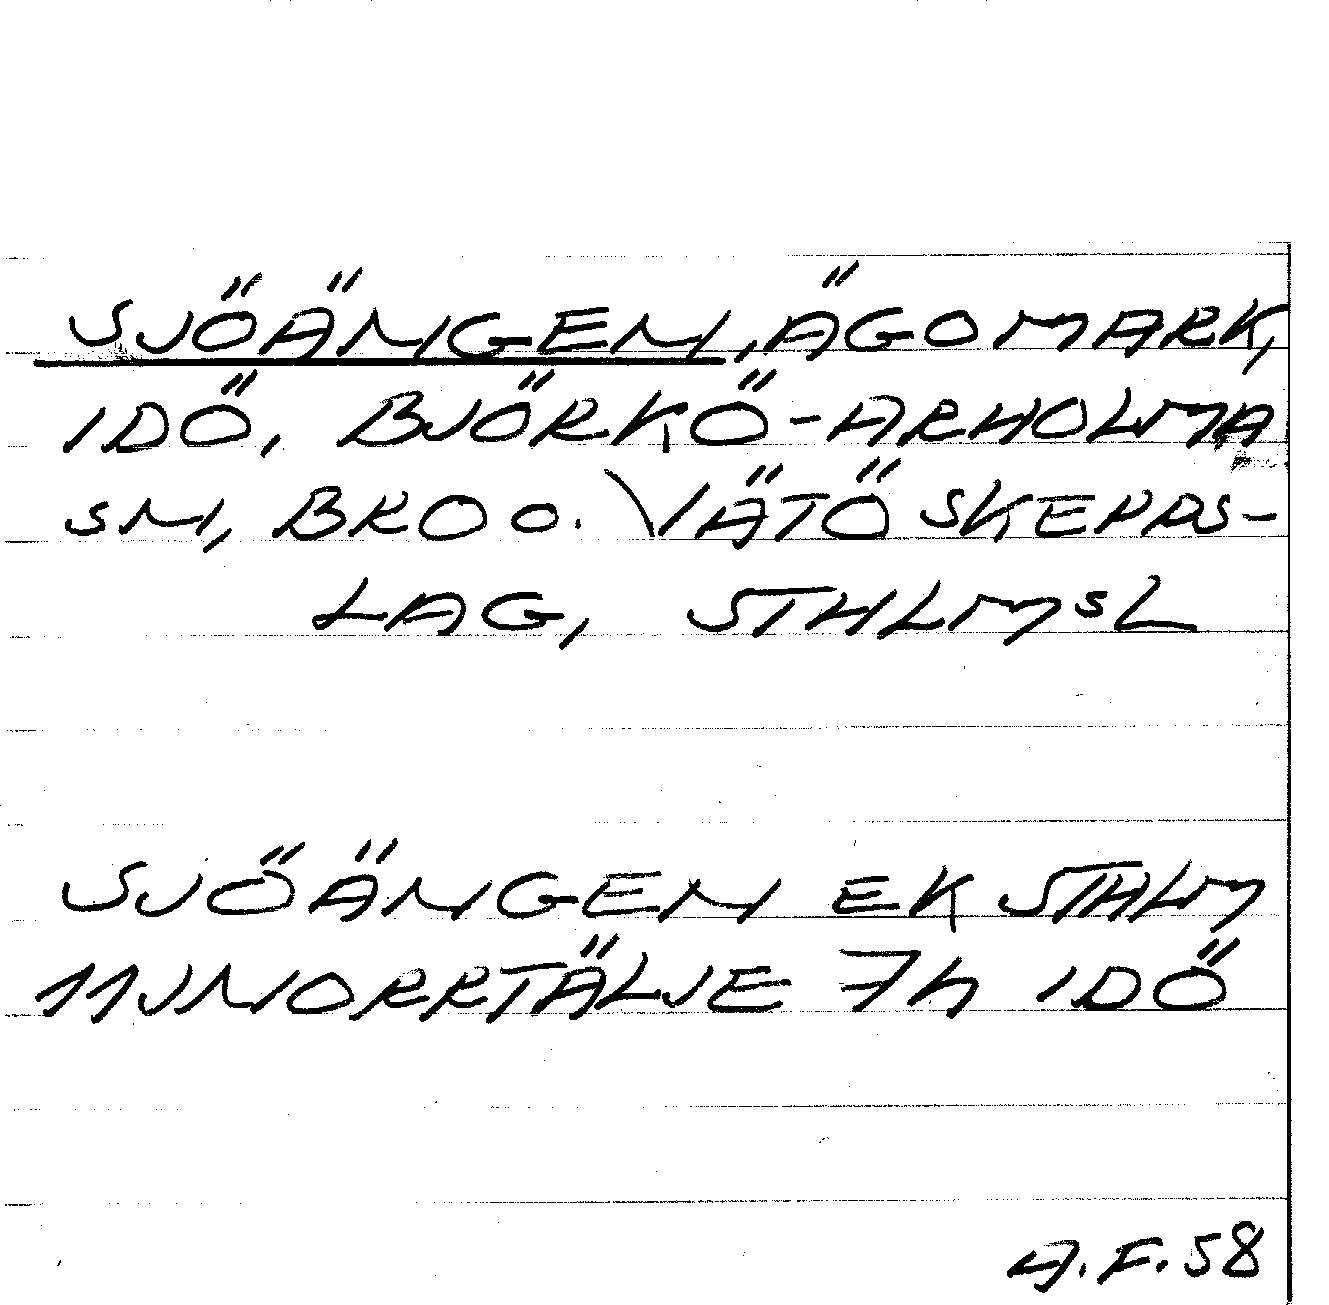 SJÖÄNGEN, ÄGOMARK,
IDÖ, BJÖRKÖ-ARHOLMA
SN, BRO O. VÄTÖ SKEPPS-
LAG, STHLMSL
SJÖÄNGEN EK STHLM
11J NORRTÄLJE 7h IDÖ
A.F. 58